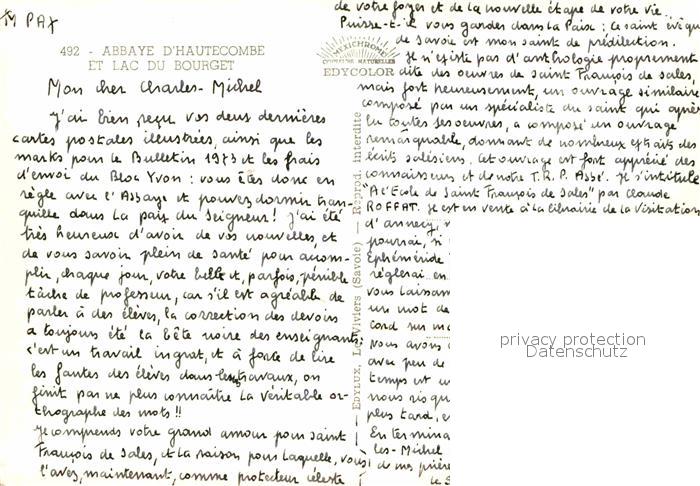 M PAX
492 - ABBAYE D'HAUTECOMBE
ET LAC DU BOURGET
Mon cher Charles-Michel
J'ai bien reçu vos deux dernières
cartes postales illustrées, ainsi que les
marks pour le Bulletin 1973 et les frais
d'envoi du Bloc Yvon : vous êtes donc en
règle avec l'Abbaye et pouvez dormir tran-
quille dans la paix du Seigneur ! J'ai été
très heureux d'avoir de vos nouvelles, et
de vous savoir plein de santé pour accom-
plir, chaque jour, votre belle et, parfois, pénible
tâche de professeur, car s'il est agréable de
parler à des élèves, la correction des devoirs
a toujours été la bête noire des enseignants :
c'est un travail ingrat, et à force de lire
les fautes des élèves dans leurs travaux, on
finit par ne plus connaître la véritable or-
thographe des mots !!
Je comprends votre grand amour pour Saint
François de Sales, et la raison pour laquelle, vous
l'avez, maintenant, comme protecteur céleste
de votre foyer et de la nouvelle étape de votre vie.
Puisse-t-il vous garder dans la Paix : ce saint évêque
de Savoie est mon saint de prédilection.
MEXICHROME
COULEURS NATURELLES
EDYCOLOR
Je n'existe pas d'anthologie proprement
dite des œuvres de Saint François de Sales,
mais fort heureusement, un ouvrage similaire
composé par un spécialiste du saint qui après
lu toutes ses œuvres, a composé un ouvrage
remarquable, donnant de nombreux extraits des
écrits salésiens. Cet ouvrage est fort apprécié des
connaisseurs et de notre T.R.P. Abbé. Je s'intitule
"A l'Ecole de Saint François de Sales" par Claude
ROFFAT. Je est en vente à la librairie de la Visitation
d'Annecy,
pourrai, si
Ephéméride
réglerai en
vous laissan
un mot de
cord sur m
Nous avons
avec peu de
temps est
nous risqu
plus tard, e
En termina
les-Michel
de mes prière
EDYLUX, Les Viviers (Savoie) — Reprod. interdite
privacy protection
Datenschutz